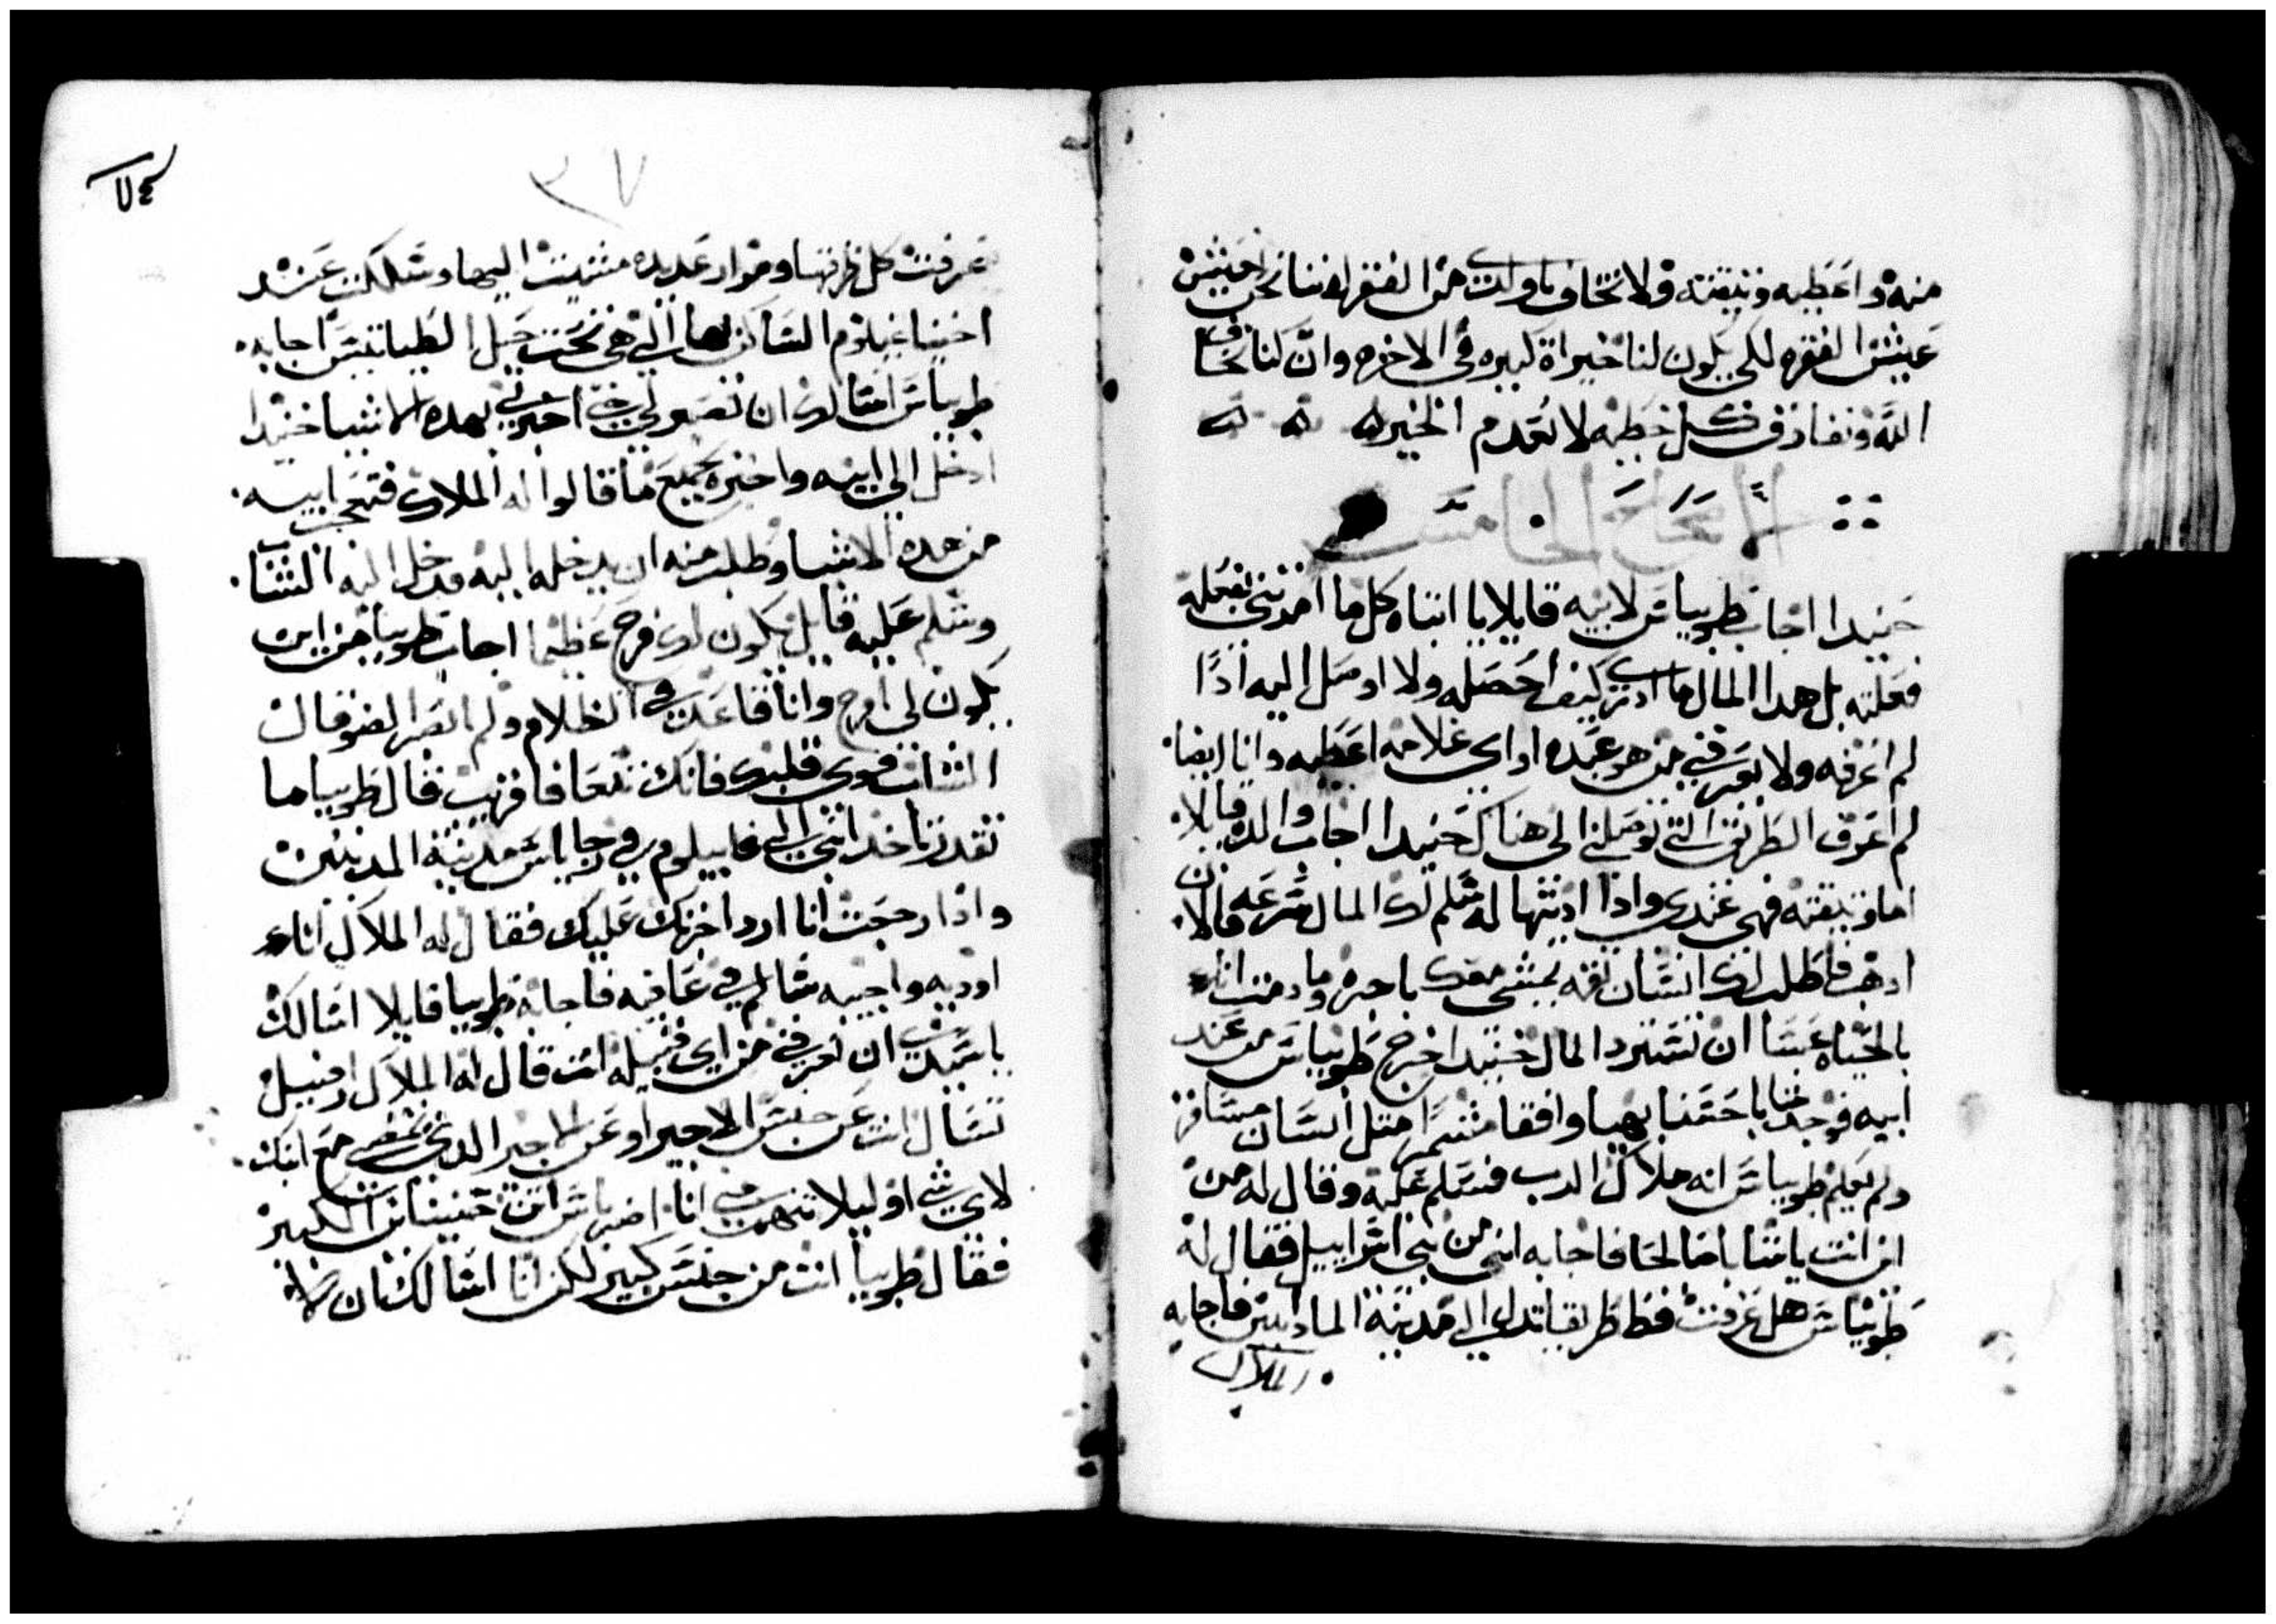 منه واعطيه وتيقته ولا تخاف ياولدى من الفقر لاننا نحن نعيش
عيش الفقره لكي يكون لنا خيراة كبيره في الاخره وان كنا نخاف
الله ونفارق كل خطيه لا نعدم الخير
الاصحاح الخامس
حنيدا اجاب طوبياس لابيه قايلا يا ابتاه كل ما امرتني نفعله
فعلته بل هدا المال ما ادرى كيف احصله ولا اوصل اليه ادا
لم اعرفه ولا يعرفني من هو عبده او اي علامه اعطيه وانا ايضا
لم اعرف الطريق التي توصلني الى هناك حنيدا اجاب والده قايلا
اما وتيقته فهي عندي وادا اديتها له سلم لك المال سرعه فالان
ادهب فاطلب لك انسان تقه يمشي معك باجره وما دمت انا
بالحياه عسا ان تسترد المال حنيدا خرج طوبياس من عند
ابيه فوجد شابا حسنا بهيا واقفا مشمرا متل انسان مسافر
ولم يعلم طوبياس انه ملاك الرب فسلم عليه وقال له من
اين انت يا شابا صالحا فاجابه انى من بني اسراييل فقال له
طوبياس هل عرفت قط طريقا تدلى الى مدينة المادايين فاجابه
الملاك
٣٧
عرفت كل طرقها ومرار عديده مشيت اليها وسلكت عند
اخينا غيلوم الساكن بهاراالي هي تحت جبل الطيباتيس اجابه
طوبياس اسالك ان تصبر لي حتى اخبر ابي بهده الاشيا حنيدا
ادخل الى ابيه واخبره بجميع ما قالوا له الملاك فتعجب ابيه
من هده الاشيا وطلب منه ان يدخله اليه فدخل اليه الشاب
وسلم عليه قايل يكون لك فرح عظيما اجاب طوبيا من اين
يكون لي فرح وانا قاعد في الظلام ولم ابصر الضو فقال
الشاب قوى قلبك فانك تتعافا قريب قال طوبيا ما
تقدر تاخد ابني الى غابيلوم في راجاس مدينة المديين
وادا رجعت انا ارد اجرتك عليك فقال له الملاك انا
اوديه واجيبه سالم في عافيه فاجابه طوبيا قايلا اسالك
ياسيدي ان تعرفني من اي قبيله انت قال له الملاك رافييل
تسال انت عن جنس الاجير او عن الاجير الدي يمضي مع ابنك
لاي شي اوليلا تتهمني انا ازرياس ابن حنينياس الكبير
فقال طوبيا انت من جنس كبير لكن انا اسالك بان لا